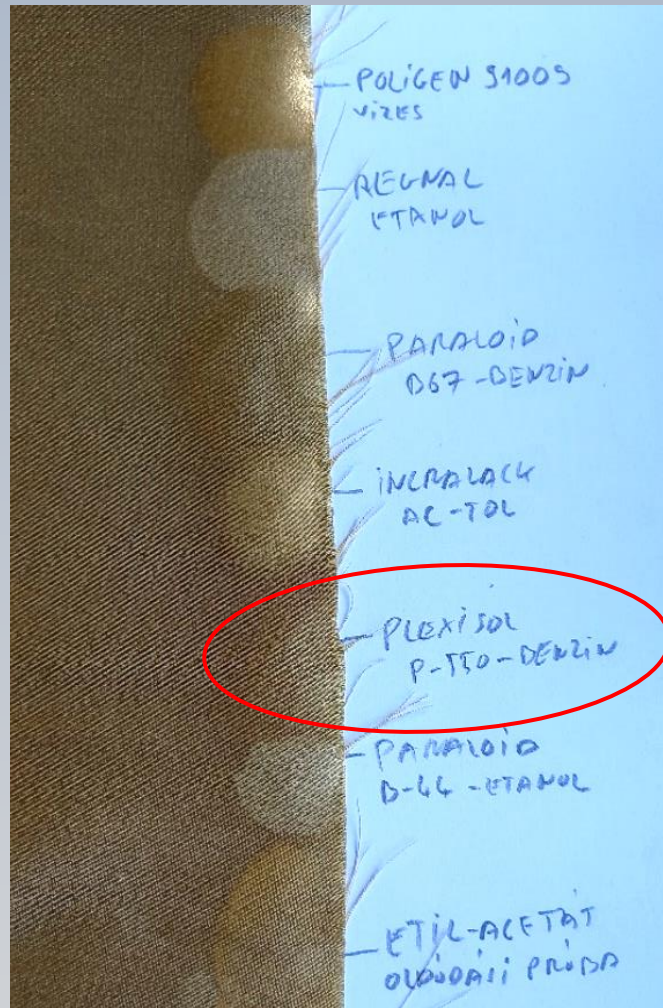 POLIGEN 91005
VIZES
REGNAL
ETANOL
PARALOID
B67-BENZIN
INCRALACK
AC-TOL
PLEXISOL
P-550-BENZIN
PARALOID
B-44-ETANOL
ETIL-ACETÁT
OLDÓDÁSI PRÓBA